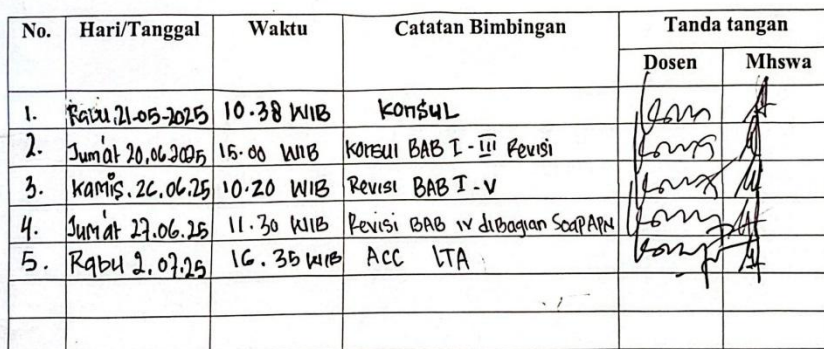 No. Hari/Tanggal Waktu Catatan Bimbingan Tanda tangan
Dosen Mhswa
1. Rabu, 21-05-2025 10.38 WIB Konsul
2. Jum'at 20.06.2025 15.00 WIB Konsul BAB I - III Revisi
3. Kamis. 26.06.25 10.20 WIB Revisi BAB I - V
4. Jum'at 27.06.25 11.30 WIB Revisi BAB IV dibagian Soap APN
5. Rabu 2.07.25 16.35 WIB ACC LTA